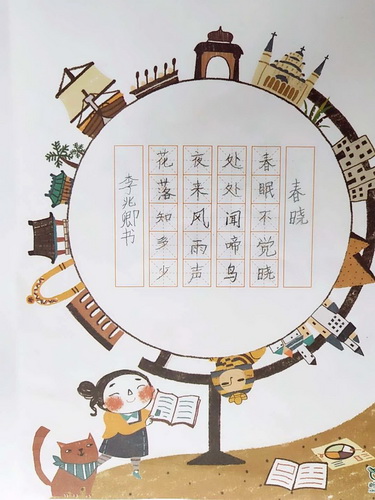 春晓
春眠不觉晓
处处闻啼鸟
夜来风雨声
花落知多少
李兆卿书